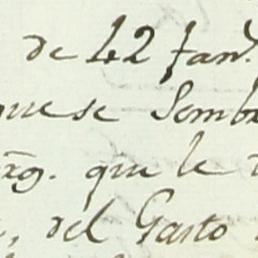 de 42 fan.^
que se Sembr
rg. que le
del Gasto